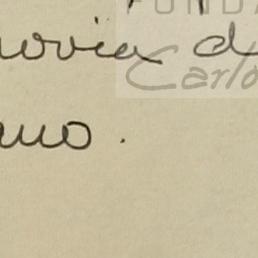 FUNDA
novia d
Carlo
ano.